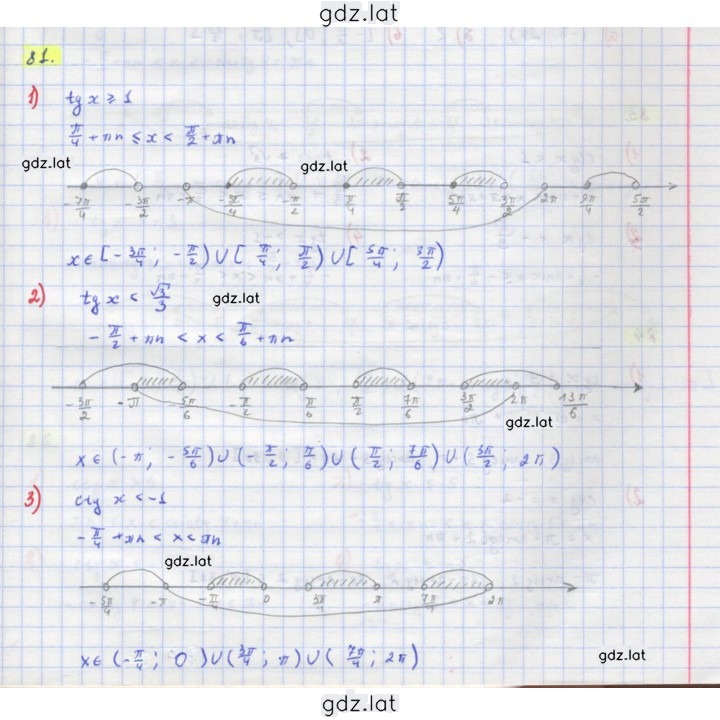 gdz.lat
81.
1) tg x ≥ 1
π/4 + πn ≤ x < π/2 + πn
gdz.lat
gdz.lat
-7π/4 -3π/2 -π -3π/4 -π/2 π/4 π/2 5π/4 3π/2 2π 9π/4 5π/2
x ∈ [-3π/4; -π/2) ∪ [π/4; π/2) ∪ [5π/4; 3π/2)
2) tg x < √3/3
gdz.lat
-π/2 + πn < x < π/6 + πn
-3π/2 -π -5π/6 -π/2 π/6 π/2 7π/6 3π/2 2π 13π/6
gdz.lat
x ∈ (-π; -5π/6) ∪ (-π/2; π/6) ∪ (π/2; 7π/6) ∪ (3π/2; 2π)
3) ctg x < -1
-π/4 + πn < x < πn
gdz.lat
-5π/4 -π -π/4 0 3π/4 π 7π/4 2π
x ∈ (-π/4; 0) ∪ (3π/4; π) ∪ (7π/4; 2π)
gdz.lat
gdz.lat